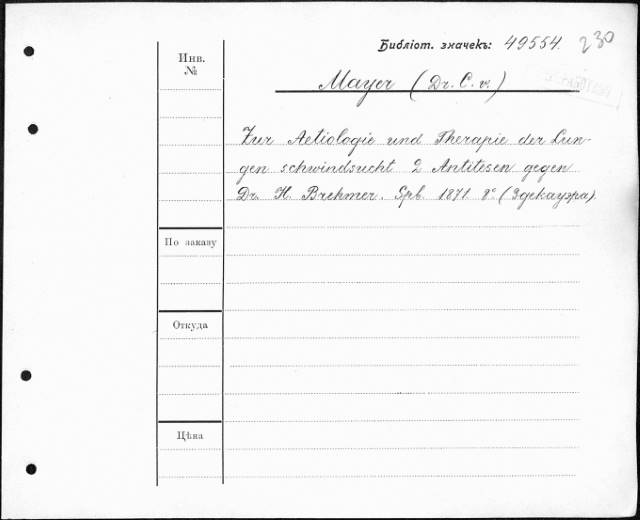 Библіот. значекъ: 49554. 230
Инв.
№
Mayer (Dr. C. v.)
Zur Aetiologie und Therapie der Lun-
gen schwindsucht 2 Antitesen gegen
Dr. H. Brehmer. Spb. 1871. 8º. (Здекауэра).
По заказу
Откуда
Цѣна